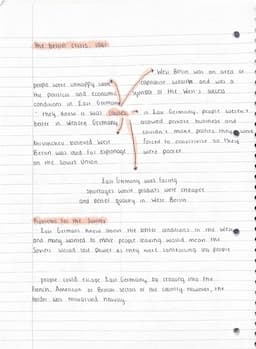 The Berlin Crisis, 1961
people were unhappy with
the political and economic
conditions in East Germany
- they knew it was
better in Western Germany
causes
West Berlin was an area of
capitalist wealth and was a
symbol of the West's success
in East Germany, people weren't
allowed private business and
couldn't make profits, they were
forced to collectivise so they
were poorer.
believed West
Berlin was used for espionage
on the Soviet Union.
East Germany was facing
shortages while products were cheaper
and better quality in West Berlin
Problems for the Soviets
East Germans knew about the better conditions in the West
and many wanted to move. people leaving would mean the
Soviets would lose power as they were controlling less people
people could escape East Germany by crossing into the
French, American or British sectors of the country. however, the
border was monitored heavily.